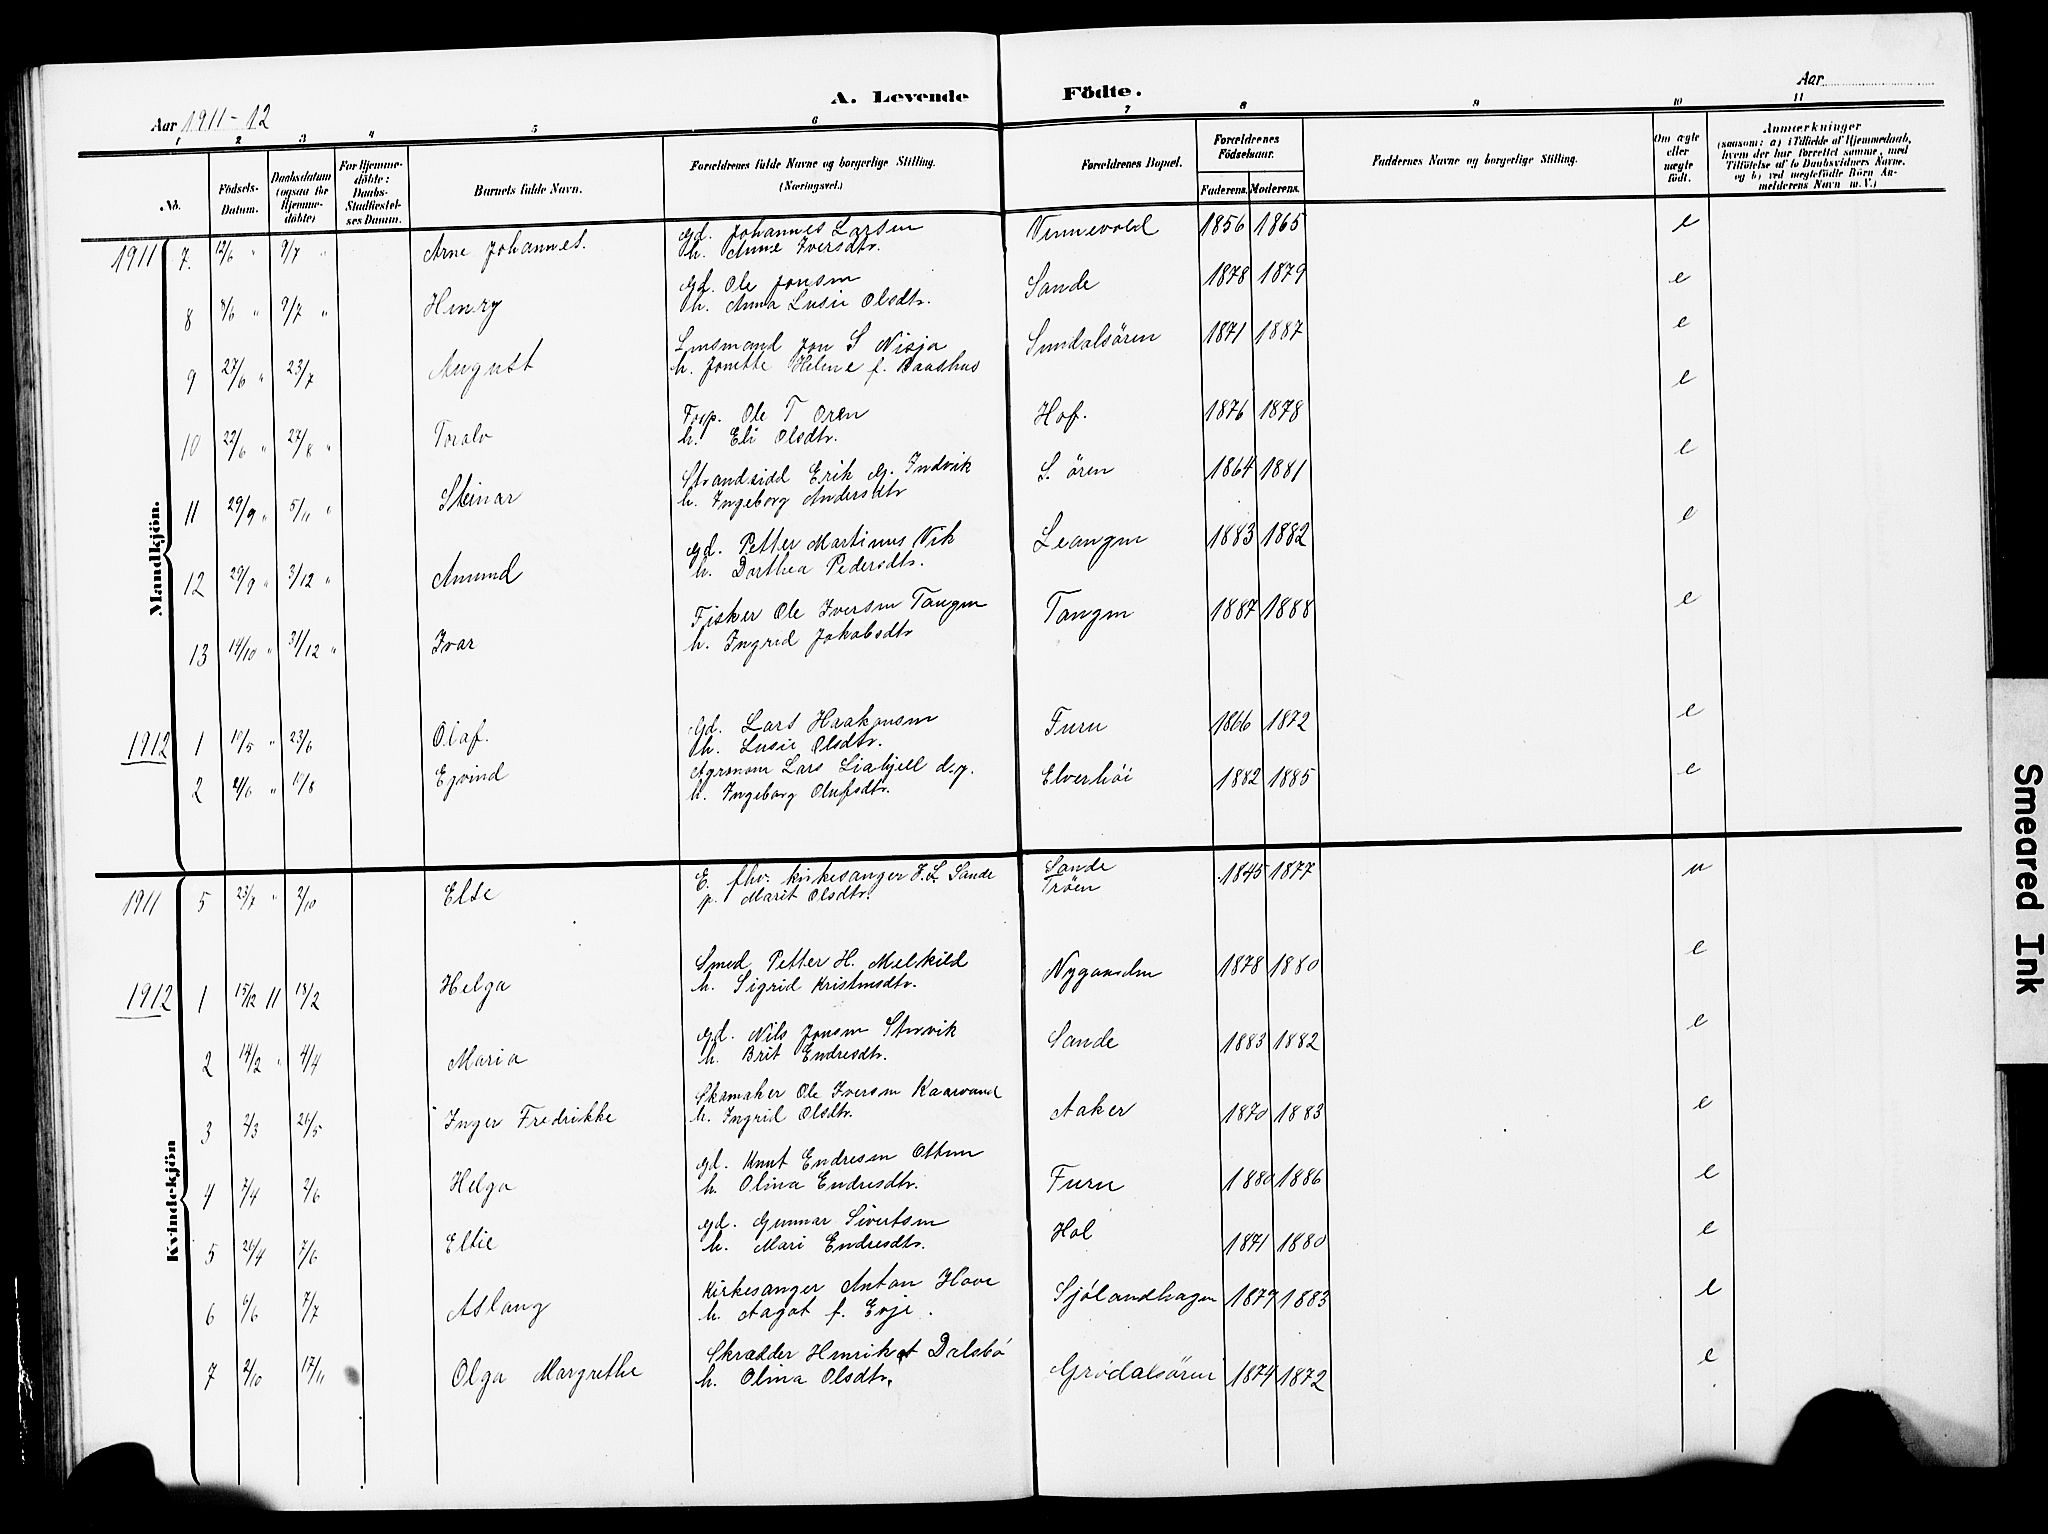 Aar 1911-12
A. Levende Födte.
Aar
1 2 3 4 5 6 7 8 9 10 11
No. Födsels-Datum. Daabsdatum (ogsaa for Hjemmedöbte) For Hjemmedöbte: Daabs-Stadfæstelses Datum. Barnets fulde Navn. Forældrenes fulde Navne og borgerlige Stilling. (Næringsvei.) Forældrenes Bopæl. Forældrenes Födselsaar. Faderens. Moderens. Faddernes Navne og borgerlige Stilling. Om ægte eller uægte født. Anmærkninger (saasom: a) i Tilfælde af Hjemmedaab, hvem der har forrettet samme, med Tilføielse af to Daabsvidners Navne. og b) ved uægtefödte Börn Anmelderens Navn m. V.)
Mandkjön.
1911 7. 12/6 " 9/7 " Arne Johannes. Gd. Johannes Larsen Vennevold 1856 1865 e
h. Anne Iversdtr.
8 8/6 " 9/7 " Henry Gd. Ole Jonsen Sande 1878 1879 e
h. Anna Lusie Olsdtr.
9 27/6 " 23/7 August Lensmand Jon S Nisja Sundalsören 1871 1887 e
h. Jonette Helene f. Baashus
10 22/6 " 27/8 " Toralv Forp. Ole T Oren Hof. 1876 1878 e
h. Eli Olsdtr.
11 29/9 " 5/11 " Steinar Strandsidd Erik G. Indvik S. ören 1864 1881 e
h. Ingeborg Andersdtr
12 29/9 " 3/12 " Amund Gd. Petter Martinus Vik Leangen 1883 1882 e
h. Dorthea Pedersdtr.
13 14/10 " 31/12 " Ivar Fisker Ole Iversen Tangen Tangen 1887 1888 e
h. Ingrid Jakobsdtr
1912 1 10/5 " 23/6 Olaf. Gd. Lars Haakonsen Furu 1866 1872 e
h. Lusie Olsdtr.
2 21/6 " 11/8 Ejvind Agronom Lars Liahjell d.y. Elverhöi 1882 1885 e
h. Ingeborg Olufsdtr.
Kvindekjön
1911 5 23/7 " 2/10 Else E. fhv. kirkesanger J. L. Sande Sande 1845 1877 u
p. Marit Olsdtr. Tröen
1912 1 15/12 11 18/2 Helga Smed Petter H. Melkild Nygaarden 1878 1880 e
h. Sigrid Kristensdtr.
2 14/2 " 4/4 Maria Gd. Nils Jonsen Storvik Sande 1883 1882 e
h. Brit Endresdtr.
3 2/3 26/5 Inger Fredrikke Skomaker Ole Iversen Kaarvand Aaker 1870 1883 e
h. Ingrid Olsdtr.
4 7/4 2/6 Helga Gd. Knut Endresen Ottem Furu 1880 1886 e
h. Olina Endresdtr.
5 26/4 7/6 Elsie Gd. Gunnar Sivertsen Hol 1871 1880 e
h. Mari Endresdtr.
6 6/6 7/7 Aslaug Kirkesanger Anton Hove Sjölandhagen 1879 1883 e
h. Aagot f. Evje.
7 2/10 17/11 Olga Margrethe Skrædder Henrik A Dalsbö Grödalsören 1874 1872 e
h. Olina Olsdtr.
Smeared Ink